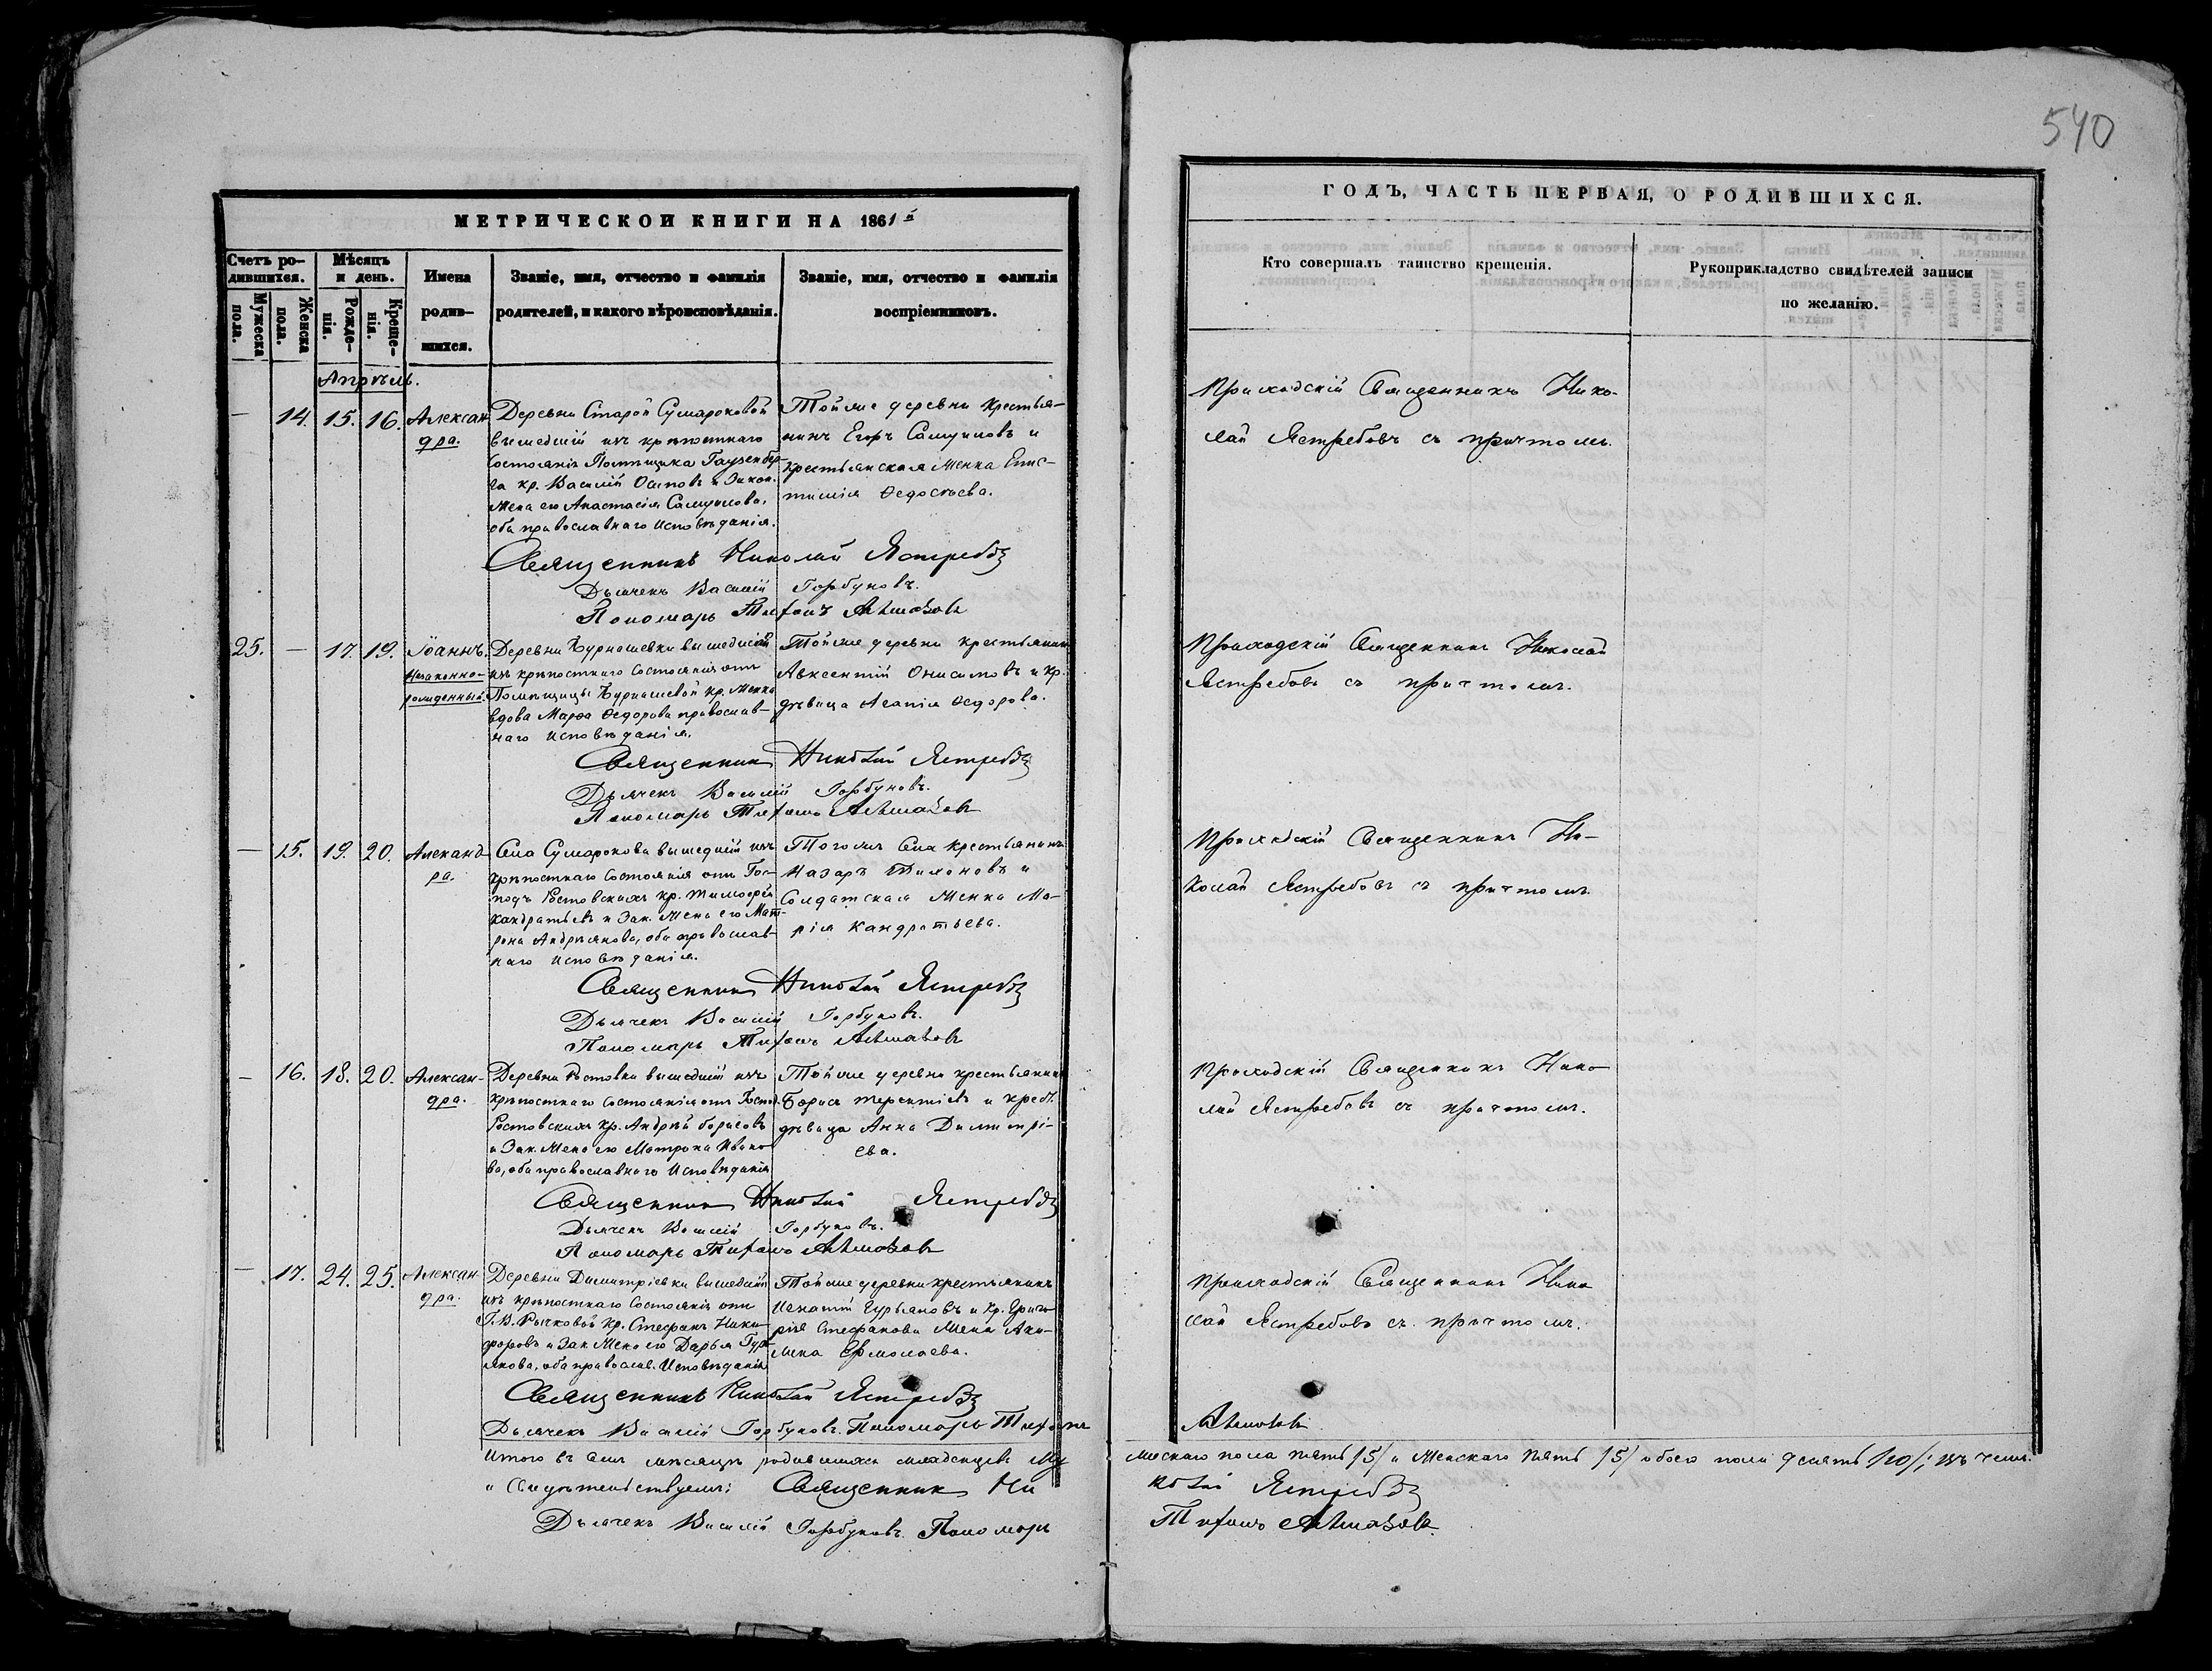 540
МЕТРИЧЕСКОЙ КНИГИ НА 1861й
Счетъ ро-
дившихся.
Мужеска
пола.
Женска
пола.
Мѣсяцъ
и день.
Рожде-
нія.
Креще-
нія.
Имена
родив-
шихся.
Званіе, имя, отчество и фамилія
родителей, и какого вѣроисповѣданія.
Званіе, имя, отчество и фамилія
воспріемниковъ.
ГОДЪ, ЧАСТЬ ПЕРВАЯ, О РОДИВШИХСЯ.
Кто совершалъ таинство крещенія.
Рукоприкладство свидѣтелей записи
по желанію.
Апрѣль.
— 14. 15. 16.
Алексан
дра.
Деревни Старой Сумароковой
вышедшій изъ крѣпостнаго
состоянія Помѣщика Гаузенбер-
га кр. Василій Осиповъ и Закон.
жена его Анастасія Самуилова,
оба православнаго исповѣданія.
Тойже деревни крестья-
нинъ Егоръ Самуиловъ и
крестьянская женка Епис-
тимія Ѳедосѣева.
Приходскій Священникъ Нико-
лай Ястребовъ съ причтомъ.
Священникъ Николай Ястребовъ
Дьячекъ Василій Горбуновъ.
Пономарь Тифонъ
25. — 17. 19.
Іоаннъ.
Незаконно-
рожденный.
Деревни Бурнашевки вышедшій
изъ крѣпостнаго состоянія отъ
Помѣщицы Бурнашевой кр. женка
вдова Марѳа Ѳедорова православ-
наго исповѣданія.
Тойже деревни крестьянинъ
Авксентій Онисимовъ и кр.
дѣвица Агапія Ѳедорова.
Приходскій Священникъ Николай
Ястребовъ съ причтомъ.
Священникъ Николай Ястребовъ
Дьячекъ Василій Горбуновъ.
Пономарь Тифонъ
— 15. 19. 20.
Алеканд
ра.
Села Сумарокова вышедшій изъ
крѣпостнаго состоянія отъ Гос-
подъ Ростовскихъ кр. Тимоѳей
Кандратьевъ и Зак. жена его Мат-
рона Андреянова, оба православ-
наго исповѣданія.
Тогожъ села крестьянинъ
Назаръ и
Солдатская женка Ма-
рія Кандратьева.
Приходскій Священникъ Ни-
колай Ястребовъ съ причтомъ.
Священникъ Николай Ястребовъ
Дьячекъ Василій Горбуновъ.
Пономарь Тифонъ
— 16. 18. 20.
Алексан-
дра.
Деревни Ростовки вышедшій изъ
крѣпостнаго состоянія отъ Господ.
Ростовскихъ кр. Андрей Борисовъ
и Зак. жена его Матрона Ивано-
ва, оба православнаго исповѣданія
Тойже деревни крестьянинъ
Борисъ Терентіевъ и крест.
дѣвица Анна Димитрі-
ева.
Приходскій Священникъ Нико-
лай Ястребовъ съ причтомъ.
Священникъ Николай Ястребовъ
Дьячекъ Василій Горбуновъ.
Пономарь Тифонъ
— 17. 24. 25.
Алексан-
дра.
Деревни Димитріевки вышедшій
изъ крѣпостнаго состоянія отъ
Г. В. Рычковой кр. Стефанъ Ники-
форовъ и Зак. жена его Дарья Гурь-
янова, оба правосл. исповѣданія
Тойже деревни крестьянинъ
Игнатій Гурьяновъ и кр. Григо-
рія Стефанова жена Аки-
лина Ермолаева.
Приходскій Священникъ Нико-
лай Ястребовъ съ причтомъ.
Священникъ Николай Ястребовъ
Дьячекъ Василій Горбуновъ. Пономарь Тифонъ
Итого въ семъ мѣсяцѣ родившихся младенцевъ му
жескаго пола пять /5/ и женскаго пять /5/ обоего пола десять /10/; въ чемъ
и свидѣтельствуемъ: Священникъ Ни
колай Ястребовъ
Дьячекъ Василій Горбуновъ. Пономарь
Тифонъ